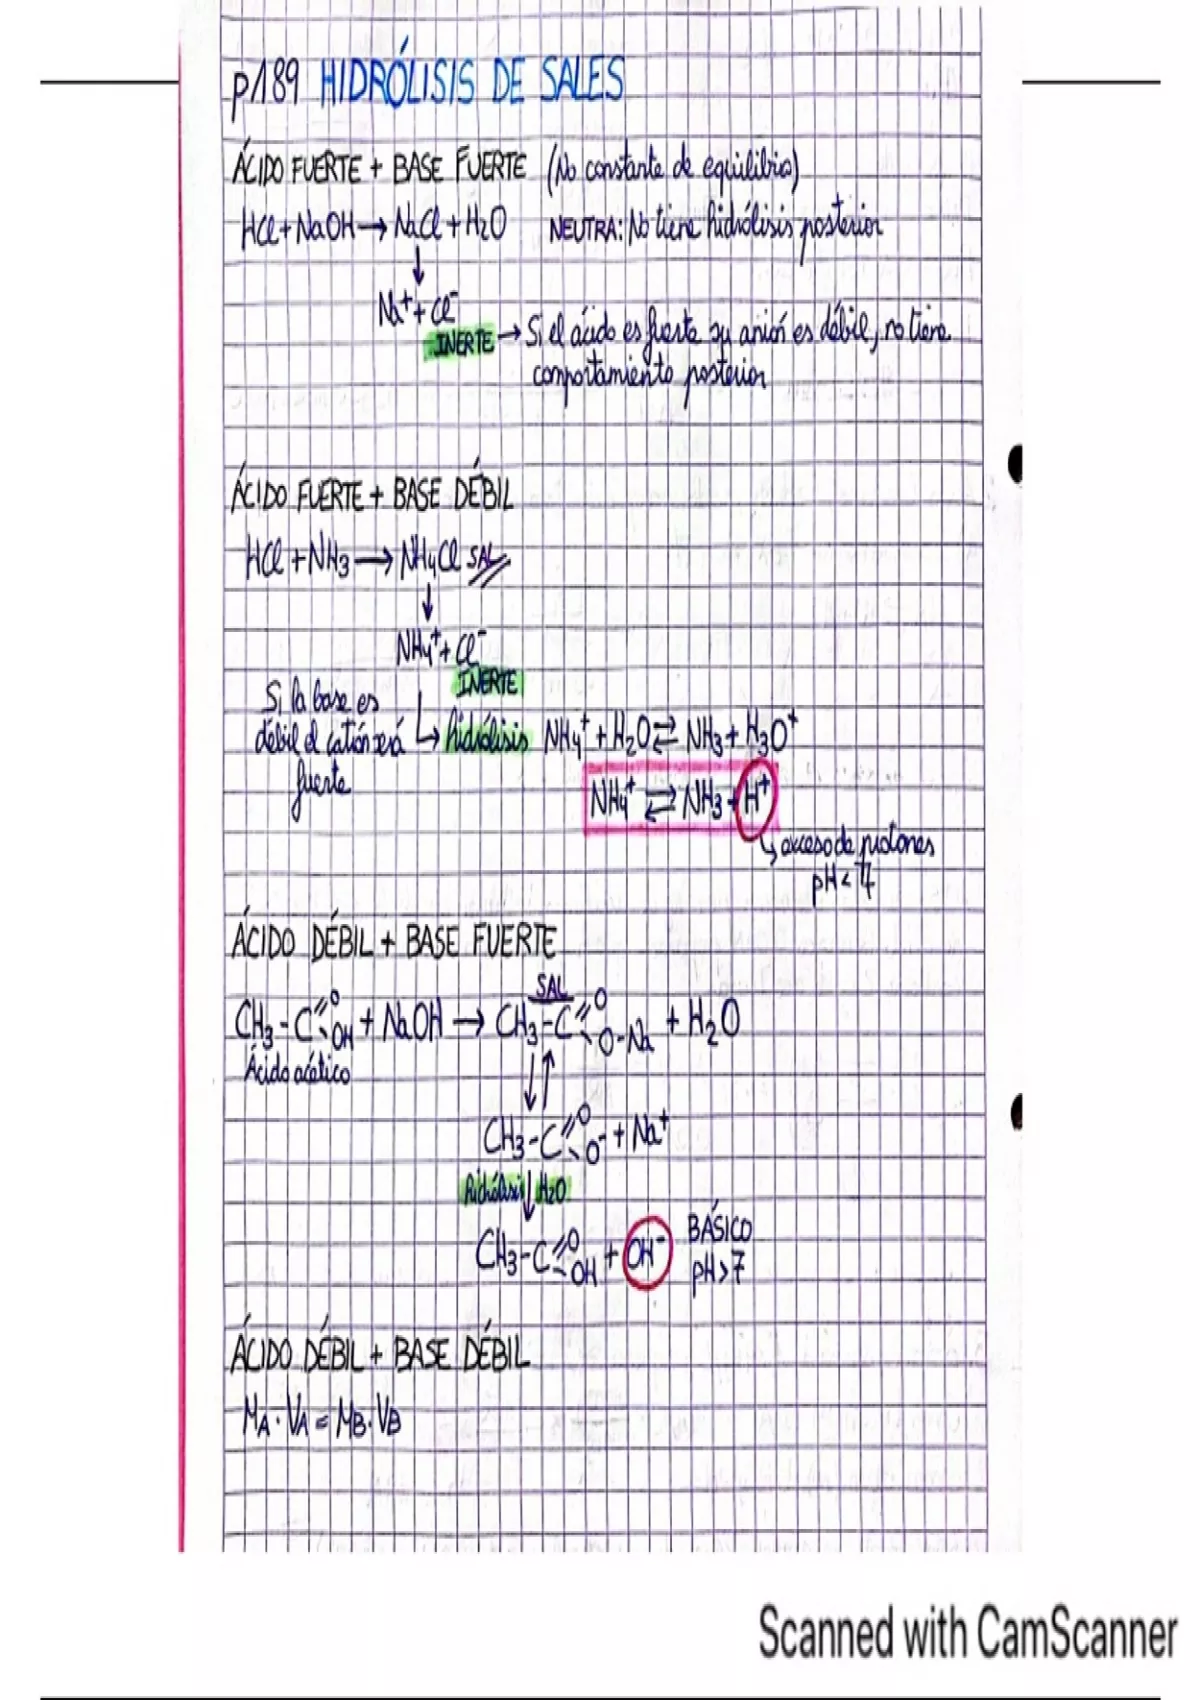 p189 HIDRÓLISIS DE SALES
ÁCIDO FUERTE + BASE FUERTE (No constante de equilibrio)
HCl + NaOH → NaCl + H2O NEUTRA: No tiene hidrólisis posterior
↓
Na⁺ + Cl⁻
INERTE → Si el ácido es fuerte su anión es débil, no tiene
comportamiento posterior
ÁCIDO FUERTE + BASE DÉBIL
HCl + NH3 → NH4Cl SAL
↓
NH4⁺ + Cl⁻
INERTE
Si la base es
débil el catión será
fuerte
↳ hidrólisis NH4⁺ + H2O ⇄ NH3 + H3O⁺
NH4⁺ ⇄ NH3 + H⁺
↳ exceso de protones
pH < 7
ÁCIDO DÉBIL + BASE FUERTE
SAL
CH3-C=O OH + NaOH → CH3-C=O O-Na + H2O
Ácido acético
↓↑
CH3-C=O O⁻ + Na⁺
hidrólisis ↓ H2O
CH3-C=O OH + OH⁻ BÁSICO
pH > 7
ÁCIDO DÉBIL + BASE DÉBIL
MA · VA = MB · VB
Scanned with CamScanner